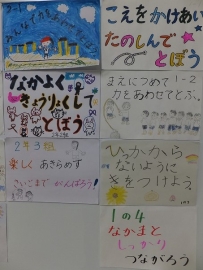 こえをかけあい
たのしんで
とぼう
なかよく
きょうりょくして
とぼう
まえにつめて 1-2
力をあわせてとぶ。
2年3組
楽しく あきらめず
さいごまでがんばろう!
ひっかから
ないように
きをつけよう。
1の4
なかまと
しっかり
つながろう